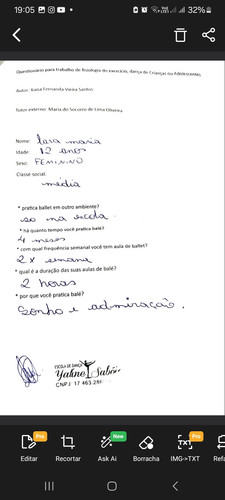 19:05
32%
Questionário para trabalho de fisiologia do exercício, dança de Crianças ou Adolescentes
Autor: Kaisa Fernanda Vieira Santos
Tutor externo: Maria do Socorro de Lima Oliveira
Nome: Iara maria
Idade: 12 anos
Sexo: FEMININO
Classe social:
média
* pratica ballet em outro ambiente?
só na escola.
* há quanto tempo você pratica balé?
4 meses
* com qual frequência semanal você tem aula de ballet?
2 x semana
* qual é a duração das suas aulas de balé?
2 horas
* por que você pratica balé?
Sonho e admiração.
ESCOLA DE DANÇA
Yaline Sabór
CNPJ 17 463.28
Pro
New
Pro
Editar
Recortar
Ask Ai
Borracha
IMG->TXT
Refa